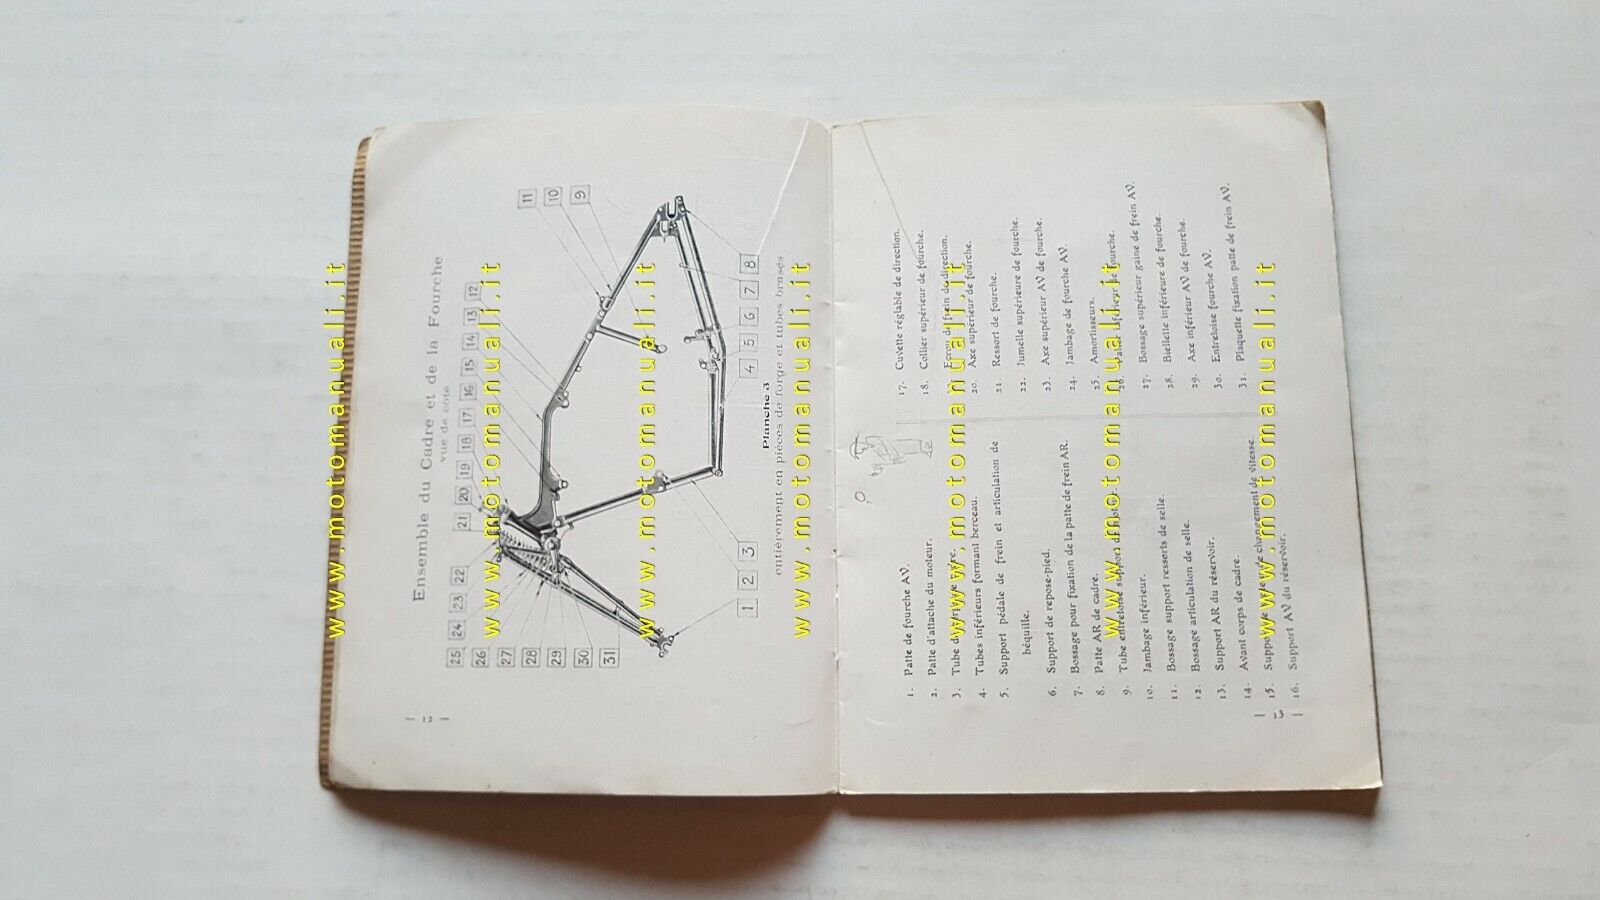 Ensemble du Cadre et de la Fourche
vue de côté
1
2
3
4
5
6
7
8
9
10
11
12
13
14
15
16
17
18
19
20
21
22
23
24
25
26
27
28
29
30
31
Planche 3
entièrement en pièces de forge et tubes brasés
1. Patte de fourche AV.
2. Patte d'attache du moteur.
3. Tube
4. Tubes inférieurs formant berceau.
5. Support pédale de frein et articulation de
béquille.
6. Support de repose-pied.
7. Bossage pour fixation de la patte de frein AR.
8. Patte AR de cadre.
9. Tube entretoise support
10. Jambage inférieur.
11. Bossage support ressorts de selle.
12. Bossage articulation de selle.
13. Support AR du réservoir.
14. Avant corps de cadre.
15. changement de vitesse.
16. Support AV du réservoir.
— 13 —
17. Cuvette réglable de direction.
18. Collier supérieur de fourche.
19. Ecrou de frein de direction.
20. Axe supérieur de fourche.
21. Ressort de fourche.
22. Jumelle supérieure de fourche.
23. Axe supérieur AV de fourche.
24. Jambage de fourche AV.
25. Amortisseurs.
26. de fourche.
27. Bossage supérieur gaine de frein AV.
28. Biellette inférieure de fourche.
29. Axe inférieur AV de fourche.
30. Entretoise fourche AV.
31. Plaquette fixation patte de frein AV.
www.motomanuali.it
www.motomanuali.it
www.motomanuali.it
www.motomanuali.it
www.motomanuali.it
www.motomanuali.it
www.motomanuali.it